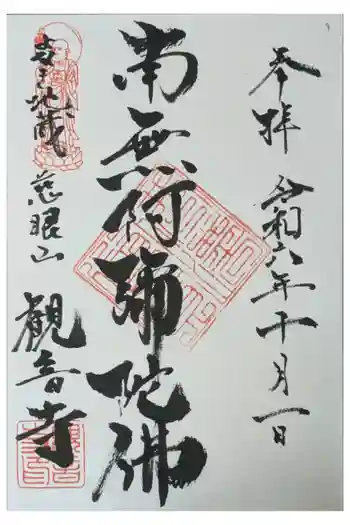 奉拝
令和六年十月一日
南無阿彌陀佛
地蔵
慈眼山
観音寺